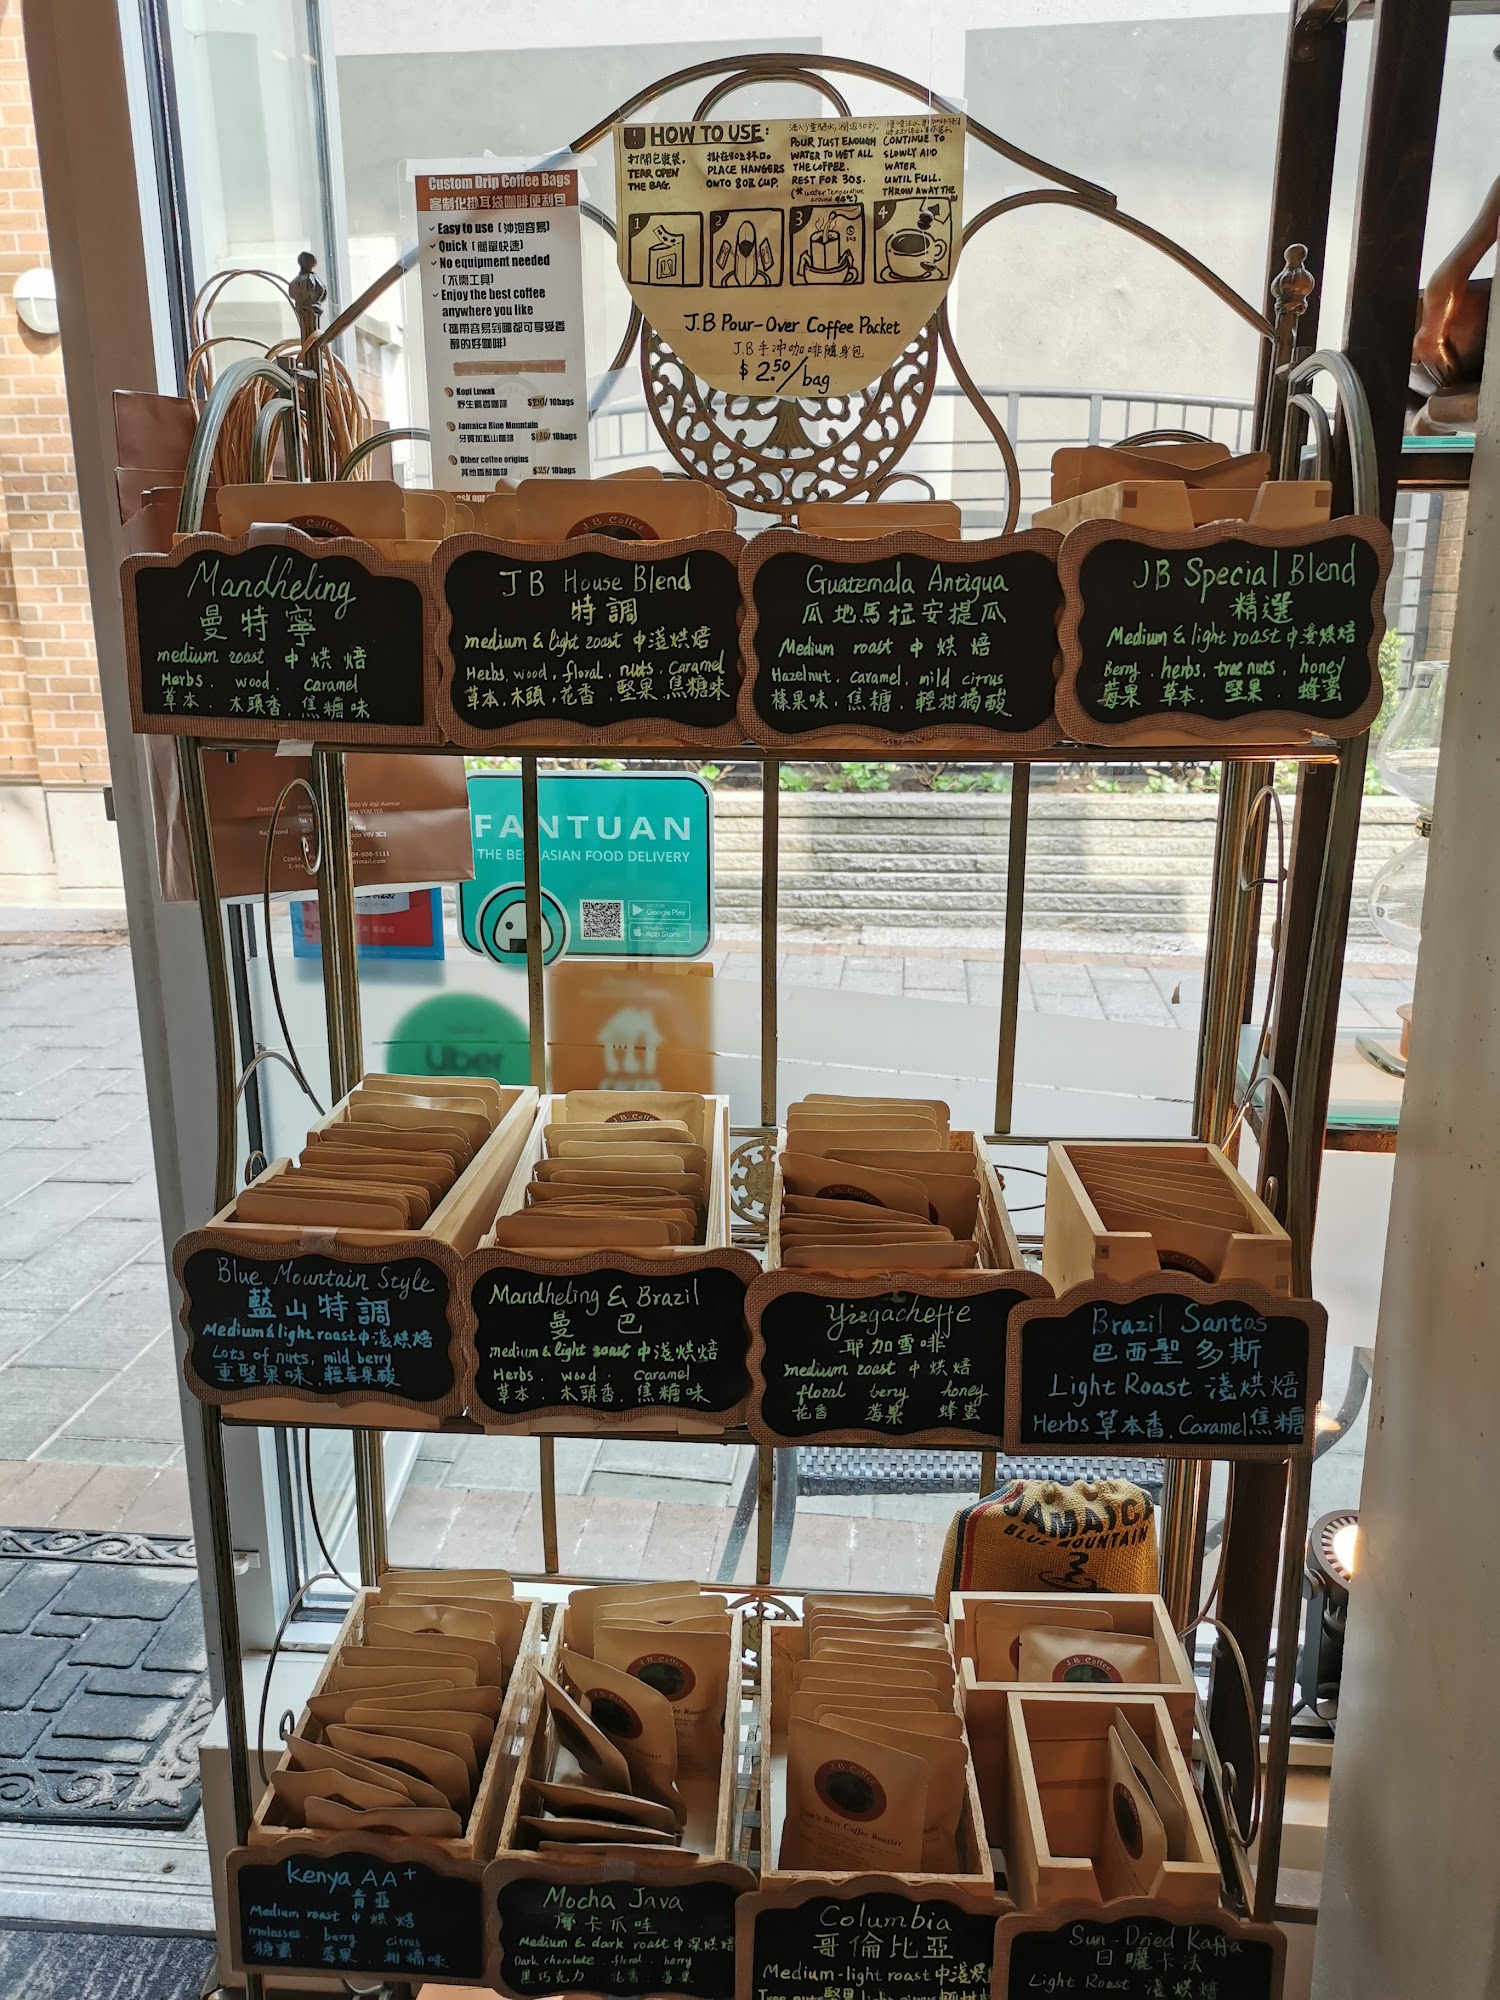 HOW TO USE:
打開包裝袋。
TEAR OPEN
THE BAG.
掛在8OZ杯口。
PLACE HANGERS
ONTO 8OZ CUP.
POUR JUST ENOUGH
WATER TO WET ALL
THE COFFEE.
REST FOR 30S.
(* water Temperative
around 94℃)
CONTINUE TO
SLOWLY ADD
WATER
UNTIL FULL.
THROW AWAY THE
1
2
3
4
J.B Pour-Over Coffee Packet
J.B手冲咖啡隨身包
$2.50/bag
Custom Drip Coffee Bags
客制化掛耳袋咖啡便利包
Easy to use (沖泡容易)
Quick (簡單快速)
No equipment needed
(不需工具)
Enjoy the best coffee
anywhere you like
(攜帶容易到哪都可享受香
醇的好咖啡)
Kopi Luwak
野生麝香咖啡
/10bags
Jamaica Blue Mountain
牙買加藍山咖啡
/10bags
Other coffee origins
其他香醇咖啡
$25/10bags
J.B. Coffee
J.B. Coffee
Mandheling
曼特寧
medium roast 中烘焙
Herbs. wood. caramel
草本. 木頭香. 焦糖味
JB House Blend
特調
medium & light roast 中淺烘焙
Herbs, wood, floral, nuts, caramel
草本, 木頭, 花香, 堅果, 焦糖味
Guatemala Antigua
瓜地馬拉安提瓜
Medium roast 中烘焙
Hazelnut, caramel, mild citrus
榛果味, 焦糖, 輕柑橘酸
JB Special Blend
精選
Medium & light roast 中淺烘焙
Berry, herbs, tree nuts, honey
莓果 草本. 堅果. 蜂蜜
FANTUAN
THE BEST ASIAN FOOD DELIVERY
Google Play
App Store
Uber
J.B. Coffee
J.B. Coffee
Blue Mountain Style
藍山特調
Medium & light roast 中淺烘焙
Lots of nuts, mild berry
重堅果味, 輕莓果酸
Mandheling & Brazil
曼巴
medium & light roast 中淺烘焙
Herbs. wood. Caramel
草本. 木頭香. 焦糖味
Yirgacheffe
耶加雪啡
medium roast 中烘焙
floral berry honey
花香 莓果 蜂蜜
Brazil Santos
巴西聖多斯
Light Roast 淺烘焙
Herbs 草本香, Caramel, 焦糖
JAMAICA
BLUE MOUNTAIN
J.B. Coffee
J.B. Coffee
Kenya AA+
肯亞
Medium roast 中烘焙
molasses. berry citrus
糖蜜. 莓果. 柑橘味
Mocha Java
摩卡爪哇
Medium & dark roast 中深烘焙
Dark chocolate. floral. berry
黑巧克力. 花香. 莓果
Columbia
哥倫比亞
Medium-light roast 中淺烘
Sun-Dried Kaffa
日曬卡法
Light Roast 淺烘焙